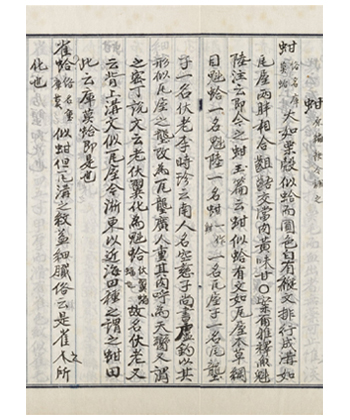 蚶
蚶 俗名庫莫蛤 大如栗殼似蛤而圓色白有楞文排行成溝如
瓦屋兩胖相合齟齬交當肉黃味甘〇案爾雅釋魚魁
陸注云即今之蚶玉篇云蚶似蛤有文如瓦屋本草綱
目魁蛤一名魁陸一名蚶一作 一名瓦屋子一名瓦壟
子一名伏老李時珍云南人名空慈子尚書盧鈞以其
形似瓦屋之壟故爲瓦壟廣人重其肉呼爲天臠又謂
之密丁說文云老伏翼化爲魁蛤 故名伏老又
云背上溝文似瓦屋今浙東以近海田種之謂之蚶田
此云庫莫蛤即是也
雀蛤 俗名 似蚶但瓦溝之數益細膩俗云是雀入所
化也